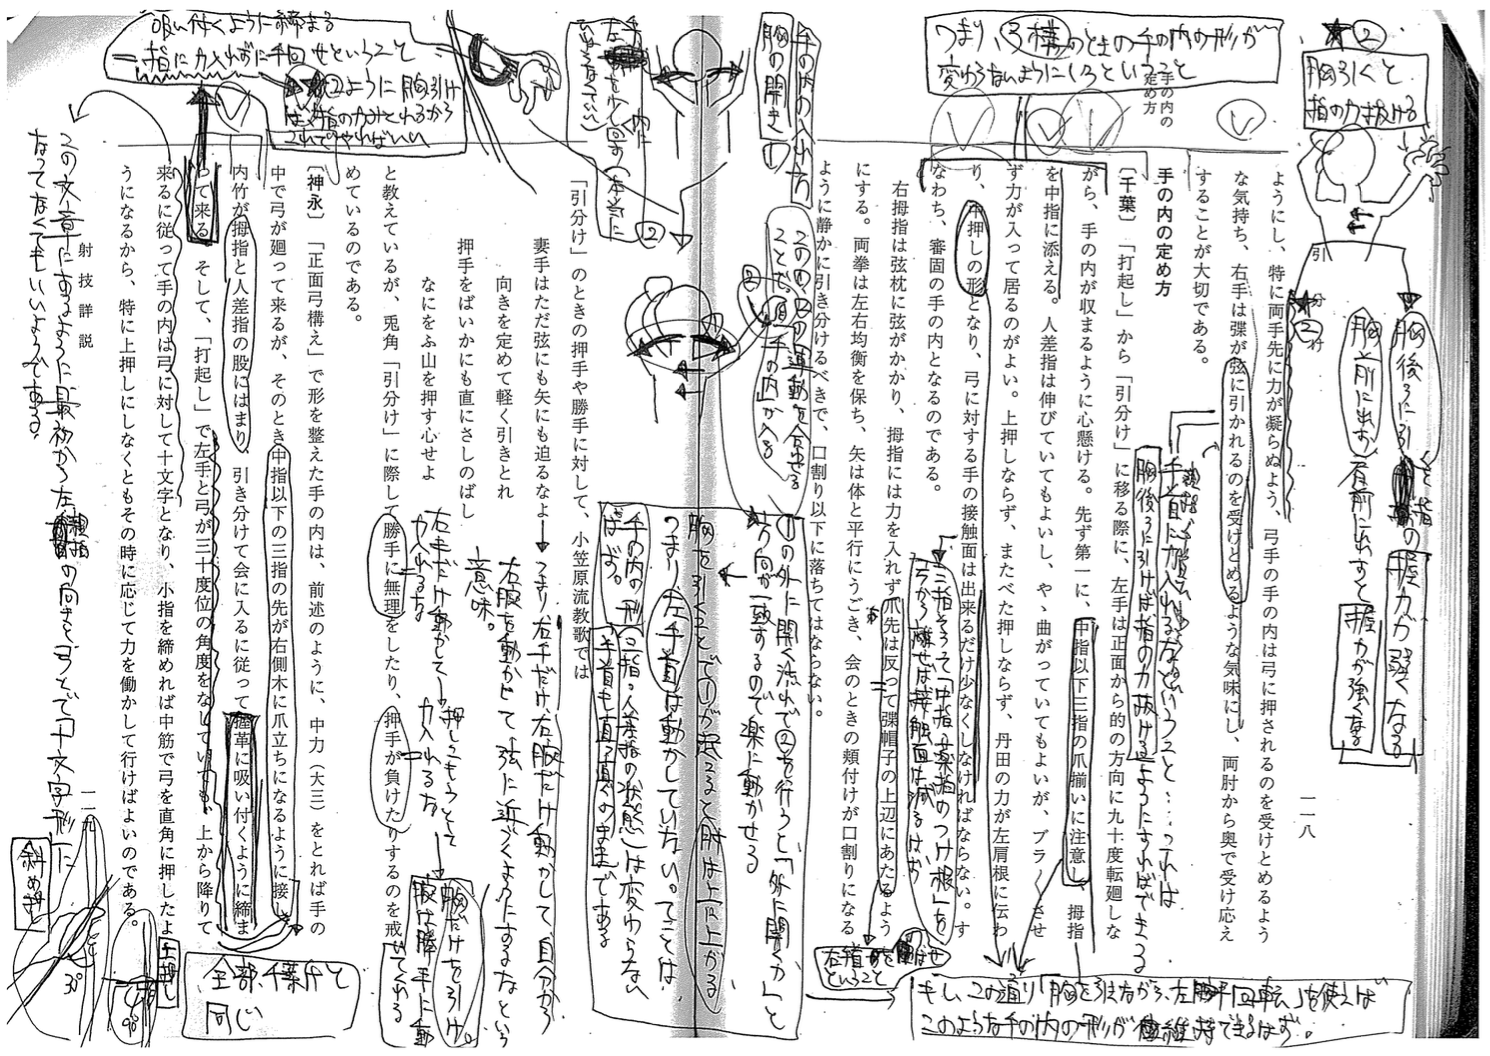 ようにし、特に両手先に力が凝らぬよう、弓手の手の内は弓に押されるのを受けとめるよう
な気持ち、右手は弽が弦に引かれるのを受けとめるような気味にし、両肘から奥で受け応え
することが大切である。
手の内の定め方
手の内の
定め方
〔千葉〕「打起し」から「引分け」に移る際に、左手は正面から的の方向に九十度転廻しな
がら、手の内が収まるように心懸ける。先ず第一に、中指以下三指の爪揃いに注意し、拇指
を中指に添える。人差指は伸びていてもよいし、やゝ曲がっていてもよいが、ブラ〳〵させ
ず力が入って居るのがよい。上押しならず、またべた押しならず、丹田の力が左肩根に伝わ
り、中押しの形となり、弓に対する手の接触面は出来るだけ少なくしなければならない。す
なわち、審固の手の内となるのである。
右拇指は弦枕に弦がかかり、拇指には力を入れず爪先は反って弽帽子の上辺にあたるよう
にする。両拳は左右均衡を保ち、矢は体と平行にうごき、会のときの頬付けが口割りになる
ように静かに引き分けるべきで、口割り以下に落ちてはならない。
一一八
「引分け」のときの押手や勝手に対して、小笠原流教歌では
妻手はただ弦にも矢にも迫るなよ
向きを定めて軽く引きとれ
押手をばいかにも直にさしのばし
なにをふ山を押す心せよ
と教えているが、兎角「引分け」に際して勝手に無理をしたり、押手が負けたりするのを戒
めているのである。
〔神永〕「正面弓構え」で形を整えた手の内は、前述のように、中力（大三）をとれば手の
中で弓が廻って来るが、そのとき中指以下の三指の先が右側木に爪立ちになるように接し
内竹が拇指と人差指の股にはまり、引き分けて会に入るに従って握革に吸い付くように締ま
って来る。そして、「打起し」で左手と弓が三十度位の角度をなしていても、上から降りて
来るに従って手の内は弓に対して十文字となり、小指を締めれば中筋で弓を直角に押したよ
うになるから、特に上押しにしなくともその時に応じて力を働かして行けばよいのである。
射技詳説
一一九
★②
胸引くと
指の力が抜ける
胸後ろに引くと指の握力が弱くなる
胸前に出す
握力が強くなる
つまり、弓構えのときの手の内の形が
変わらないようにしろということ
胸後ろに引けば指の力抜けるようにすればできる
手の内の入れ方
胸の開き①
この①、②の運動を合わせる
ことで、「手の内」が入る
①の外に開く流れで②を行うと「外に開く力」と
方向が一致するので楽に動かせる
胸を引くことで①が起こると肘は上に上がる
つまり、左手首は動かしていない。てことは
手の内の形（三指・人差指の状態）は変わらない
はず。手首も真っ直ぐのままである
つまり右手だけ、右腕だけ動かして、自分から
右腕を動かして、弦に近づくようにするなという
意味。
右手だけ動かして
力入れるな
押しこもうとして
力入れるな
胸だけを引け。
腕は勝手に動
せてある
吸い付くように締まる
＝指に力入れずに手回せということ
★②ように胸引け
ば、指の力がとれるから
これでやればいい
全部、千葉伴と
同じ
この文章にするように最初から左親指の向きを弓とで「十文字形」に
なってなくてもいいようである。
斜め押
30°
90°
もし、この通り「胸を引きながら、左手回転」を使えば
このような手の内の形が維持できるはず。